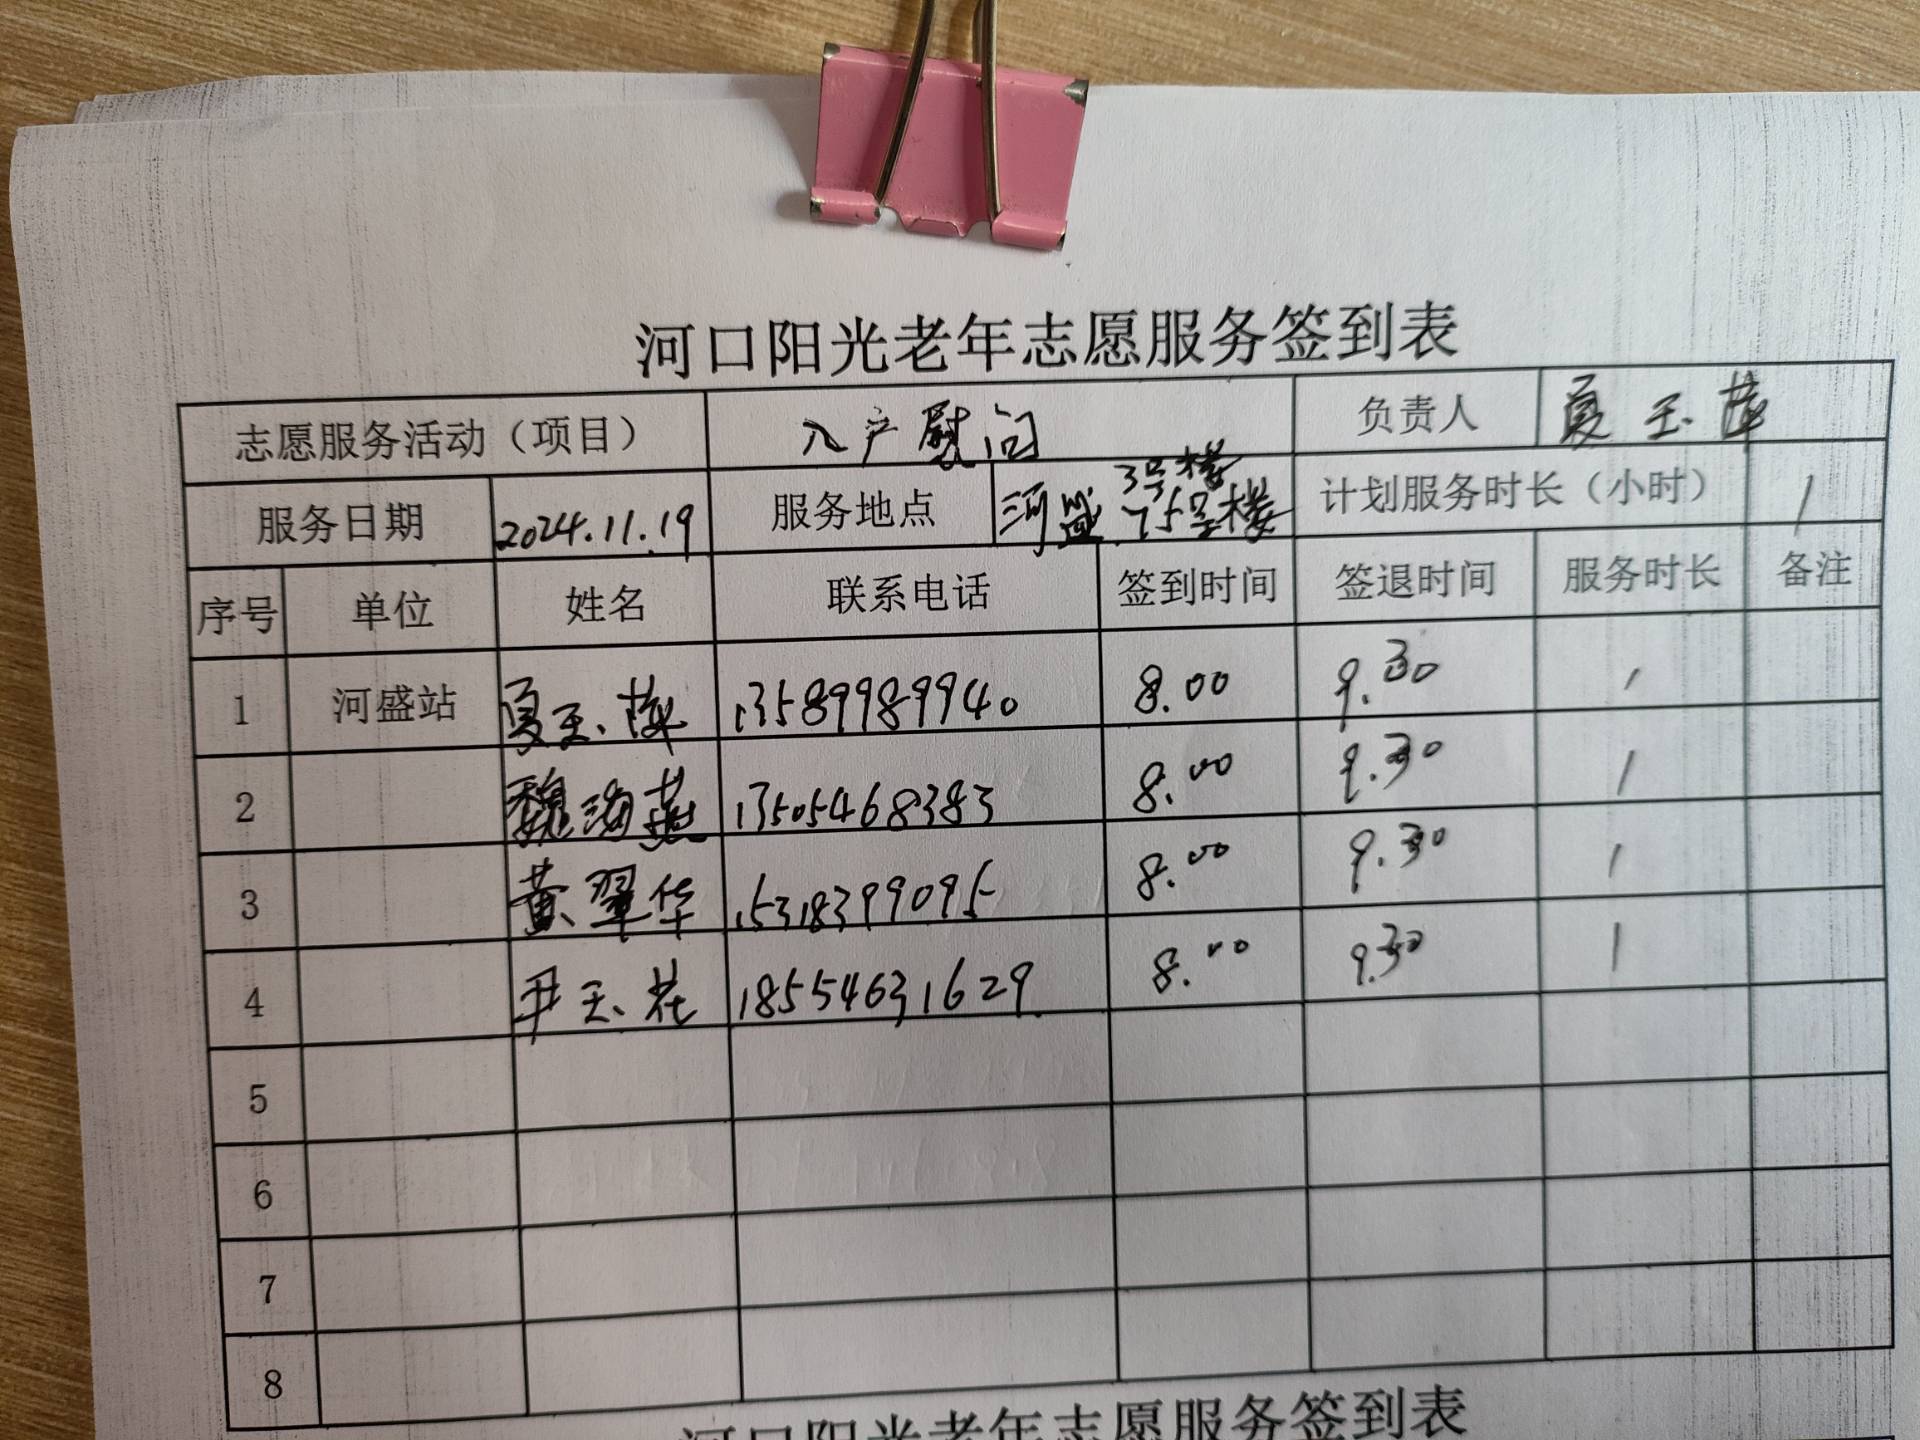 河口阳光老年志愿服务签到表
志愿服务活动（项目） 入户慰问 负责人 夏玉萍
服务日期 2024.11.19 服务地点 河盛 3号楼 75号楼 计划服务时长（小时） 1
序号 单位 姓名 联系电话 签到时间 签退时间 服务时长 备注
1 河盛站 夏玉萍 13589989940 8.00 9.30 1
2 魏海燕 13505468383 8.00 9.30 1
3 黄翠华 15318399095 8.00 9.30 1
4 尹玉花 18554631629 8.00 9.30 1
5
6
7
8
河口阳光老年志愿服务签到表